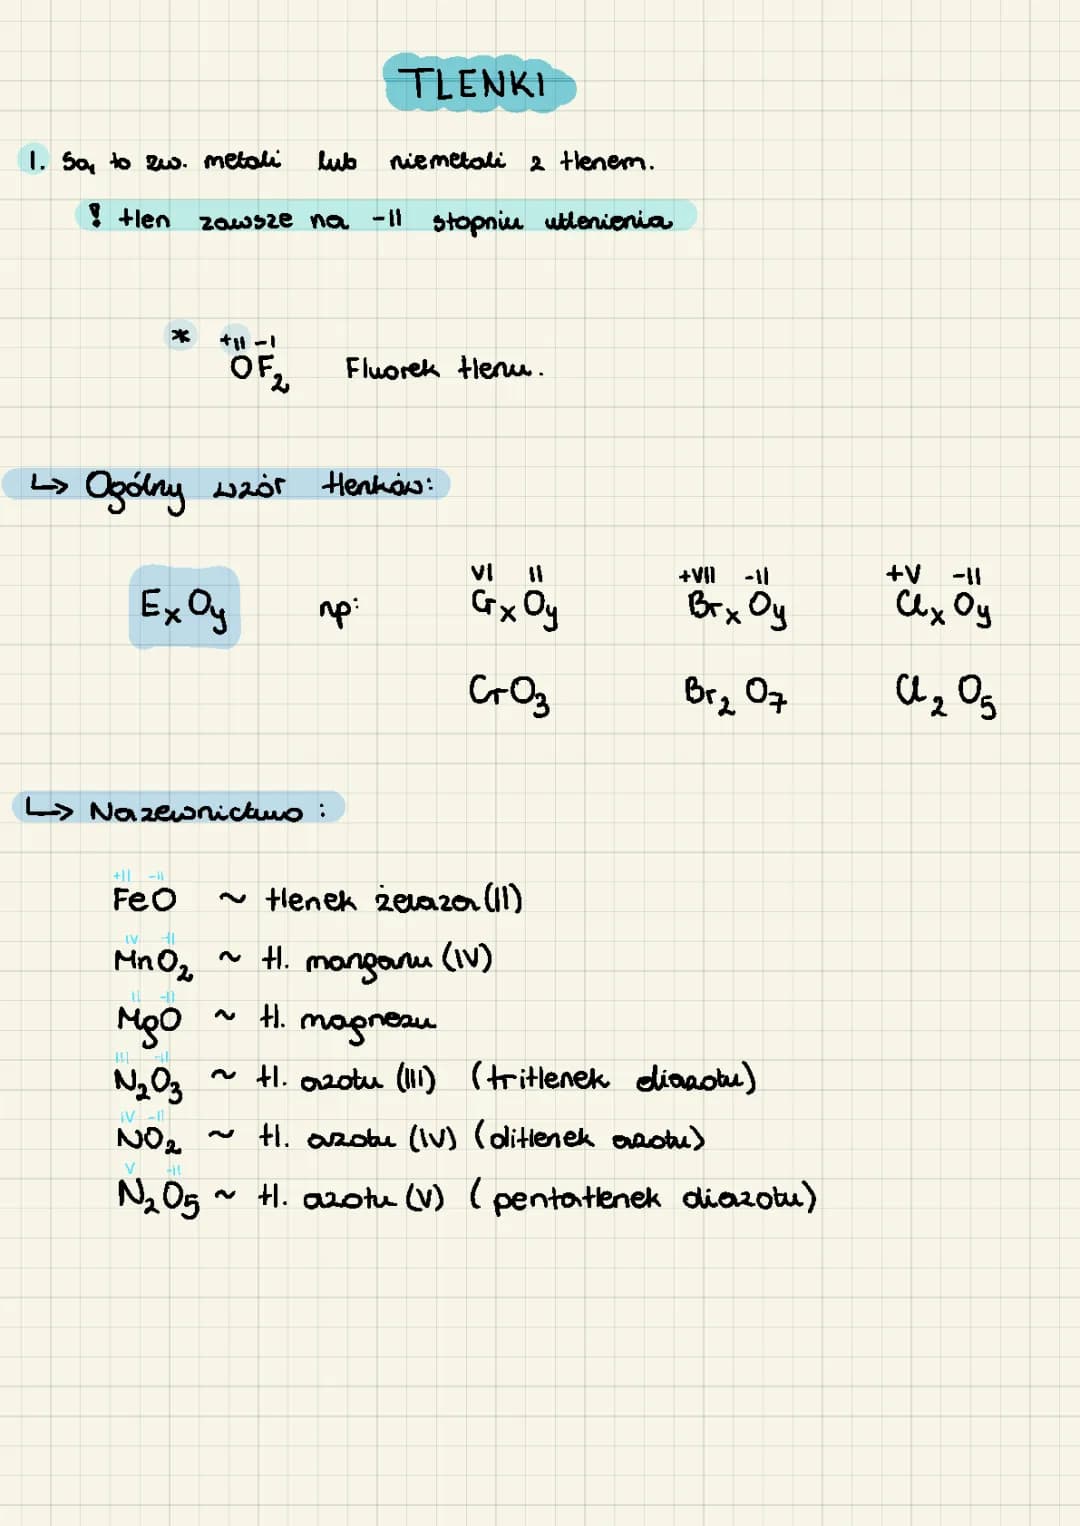 TLENKI
1. Są to zw. metali lub niemetali z tlenem.
! tlen zawsze na -II stopniu utlenienia
* +II -I
OF₂ Fluorek tlenu.
↳ Ogólny wzór tlenków:
VI II +VII -II +V -II
ExOy np: CrxOy BrxOy ClxOy
CrO₃ Br₂O₇ Cl₂O₅
↳ Nazewnictwo:
+II -II
FeO ~ tlenek żelaza (II)
IV -II
MnO₂ ~ tl. manganu (IV)
II -II
MgO ~ tl. magnezu
III -II
N₂O₃ ~ tl. azotu (III) (tritlenek diazotu)
IV -II
NO₂ ~ tl. azotu (IV) (ditlenek azotu)
V -II
N₂O₅ ~ tl. azotu (V) (pentatlenek diazotu)